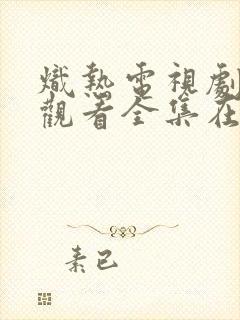 熾熱電視劇
觀看全集在
素已